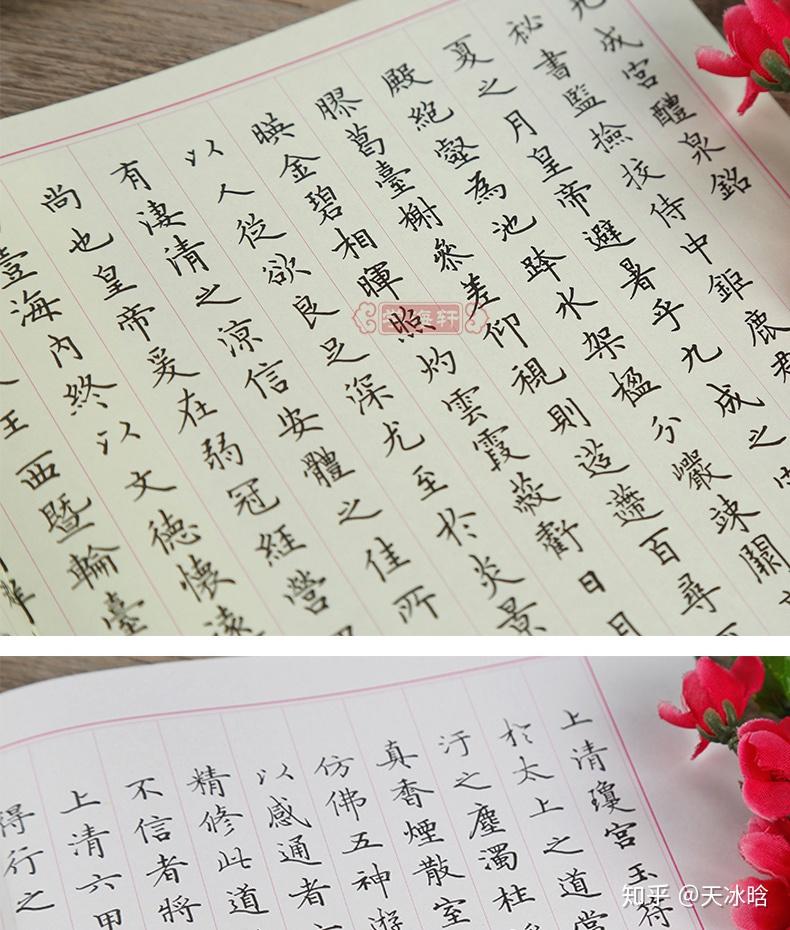 九成宮醴泉銘
祕書監撿挍侍中鉅鹿
夏之月皇帝避暑乎九成之
殿絕壑為池跨水架楹分巖竦闕
膠葛臺榭參差仰視則迢遰百尋
暎金碧相暉照灼雲霞蔽虧日月
以人從欲良足深尤至於炎景
有淒清之涼信安體之佳所
尚也皇帝爰在弱冠經營
壹海內終以文德懷遠
王西暨輪臺
上清瓊宮玉符
於太上之道當
汙之塵濁柱
真香煙散室
仿佛五神游
以感通者
精修此道
不信者將
上清六甲
得行之
知乎 @天冰晗